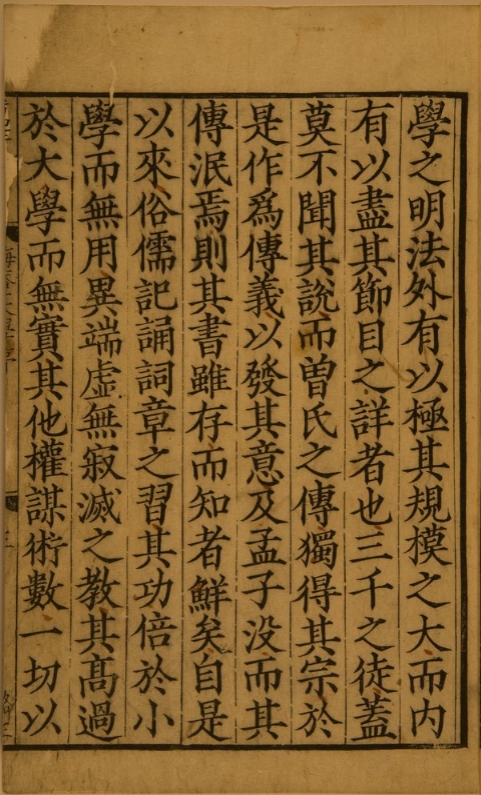 學之明法外有以極其規模之大而内
有以盡其節目之詳者也三千之徒蓋
莫不聞其說而曾氏之傳獨得其宗於
是作爲傳義以發其意及孟子没而其
傳泯焉則其書雖存而知者鮮矣自是
以來俗儒記誦詞章之習其功倍於小
學而無用異端虛無寂滅之教其髙過
於大學而無實其他權謀術數一切以